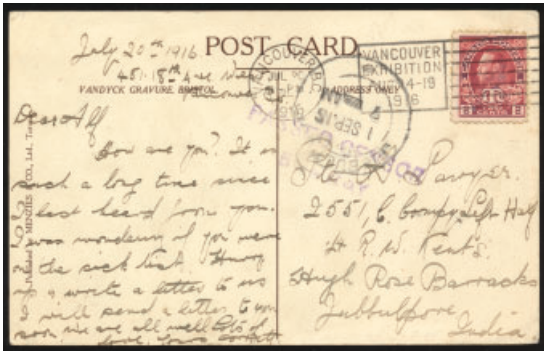 July 20th 1916
451-18th Ave West
Vancouver
POST CARD.
VANDYCK GRAVURE, BRISTOL.
ADDRESS ONLY
VANCOUVER, B.C.
JUL
1916
VANCOUVER
EXHIBITION
AUG 14-19
1916
1 SEP.16
Dear Alf
How are you? It is
such a long time since
I last heard from you.
I was wondering if you were
on the sick list. Hurry
up & write a letter to us
I will send a letter to you
soon. We are all well lots of
love, yours
Sawyer.
2551, C. Compy, Left Half
Hugh Rose Barracks
Jubbulpore
India
MENZIES & CO., Ltd.